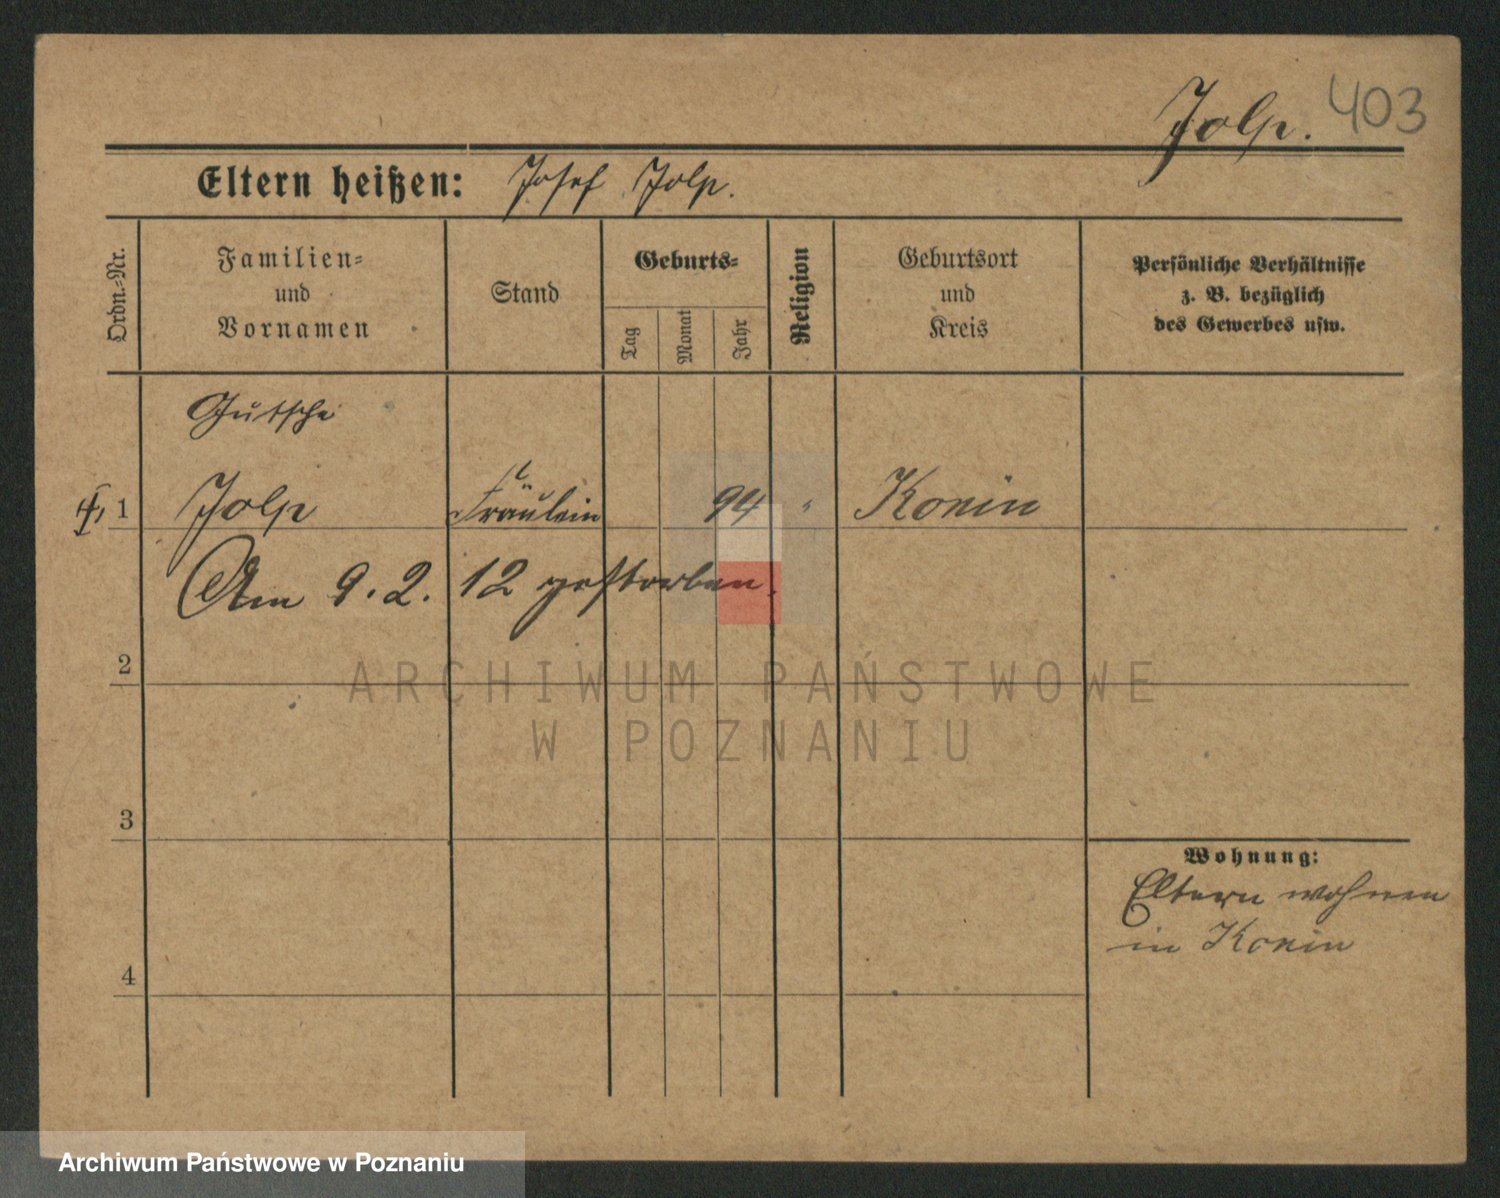 Jolp. 403
Eltern heißen: Josef Jolp.
Ordn.=Nr.
Familien=
und
Vornamen
Stand
Geburts=
Tag
Monat
Jahr
Religion
Geburtsort
und
Kreis
Persönliche Verhältnisse
z. B. bezüglich
des Gewerbes usw.
Gutsche
1 Jolp Fräulein 94 " Konin
Am 9. 2. 12 gestorben.
2
ARCHIWUM PAŃSTWOWE
W POZNANIU
3
Wohnung:
Eltern wohnen
in Konin
4
Archiwum Państwowe w Poznaniu